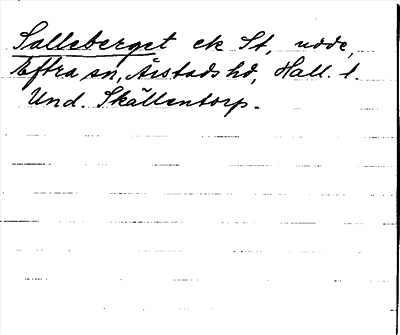 Salleberget ek St, udde,
Eftra sn, Årstads hd, Hall. l.
Und. Skällentorp.